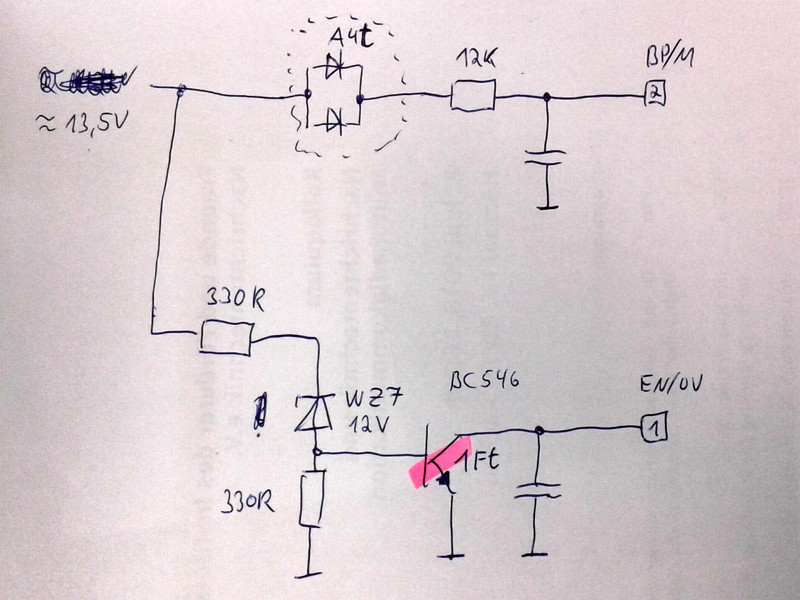 A4t
12K
BP/M
2
≈ 13,5V
330R
BC546
EN/UV
WZ7
12V
1
1Ft
330R